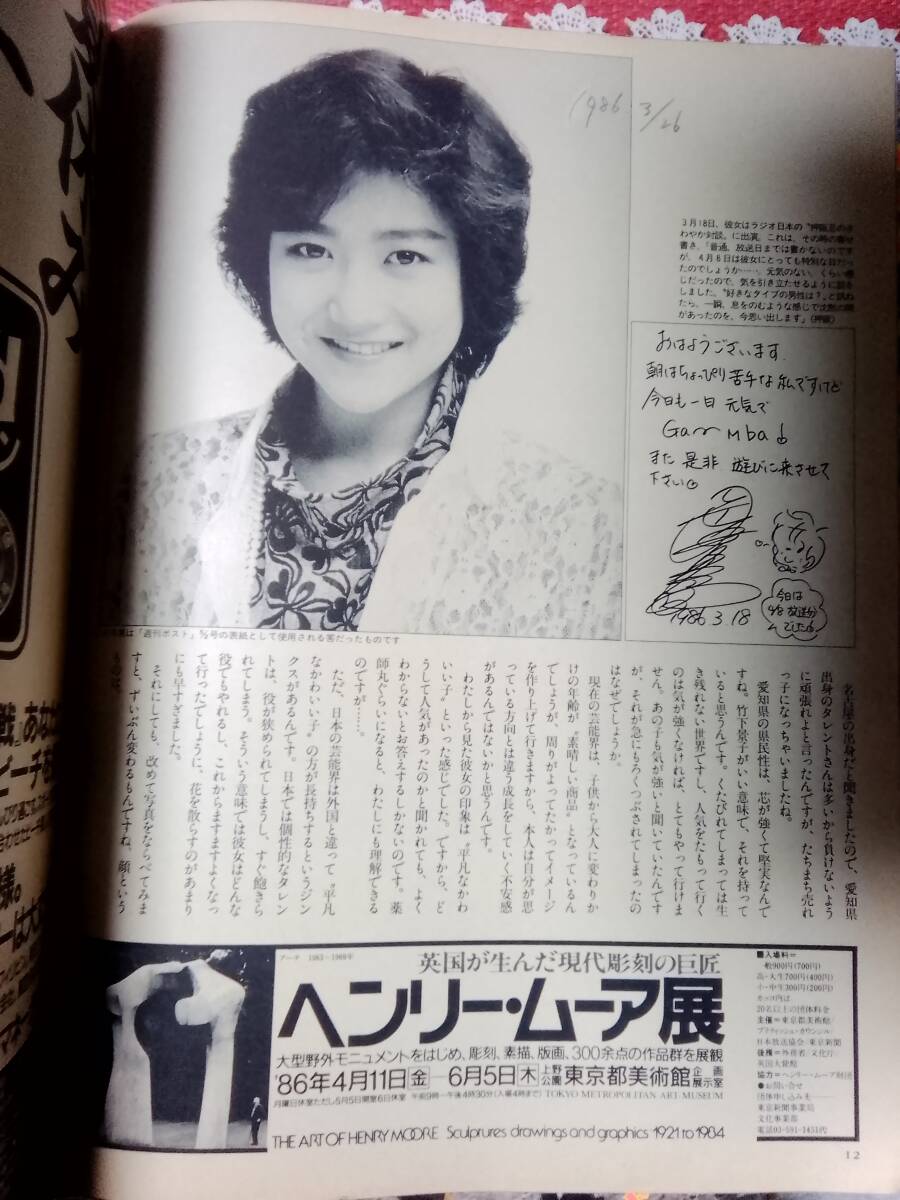 1986 3/26
3月18日、彼女はラジオ日本の〝押阪忍のさ
わやか対談〟に出演。これは、その時の寄せ
書き。「普通、放送日までは書かないのです
が、4月8日は彼女にとっても特別な日だっ
たのでしょうか……。元気のない、くらい感
じだったので、気を引き立たせるように話を
しました。〝好きなタイプの男性は？〟と訊ね
たら、一瞬、息をのむような感じで沈黙の間
があったのを、今思い出します」(押阪)
おはようございます.
朝はちょっぴり苦手なんですけど
今日も一日 元気で
Gan mba
また 是非 遊びに来させて
下さい。
1986 3 18
今日は
4/8 放送分
でした
は「週刊ポスト」5/2号の表紙として使用される筈だったものです
名古屋の出身だと聞きましたので、愛知県
出身のタレントさんは多いから負けないよう
に頑張れよと言ったんですが、たちまち売れ
っ子になっちゃいましたね。
愛知県の県民性は、芯が強くて堅実なんで
すね。竹下景子がいい意味で、それを持って
いると思うんです。くたびれてしまっては生
き残れない世界ですし、人気をたもって行く
のは気が強くなければ、とてもやって行けま
せん。あの子も気が強いと聞いていたんです
が、それが急にもろくつぶされてしまったの
はなぜでしょうか。
現在の芸能界は、子供から大人に変わりか
けの年齢が〝素晴しい商品〟となっているん
でしょうが、周りがよってたかってイメージ
を作り上げて行きますから、本人は自分が思
っている方向とは違う成長をしていく不安感
があるんではないかと思うんです。
わたしから見た彼女の印象は〝平凡なかわ
いい子〟といった感じでした。ですから、ど
うして人気があったのかと聞かれても、よく
わからないとお答えするしかないのです。薬
師丸ぐらいになると、わたしにも理解できる
のですが……。
ただ、日本の芸能界は外国と違って〝平凡
なかわいい子〟の方が長持ちするというジン
クスがあるんです。日本では個性的なタレン
トは、役が狭められてしまうし、すぐ飽きら
れてしまう。そういう意味では彼女はどんな
役でもやれるし、これからますますよくなっ
て行ったでしょうに、花を散らすのがあまり
にも早すぎました。
それにしても、改めて写真をならべてみま
すと、ずいぶん変わるもんですね、顔という
ものは。
アーチ 1963−1969年
英国が生んだ現代彫刻の巨匠
ヘンリー・ムーア展
大型野外モニュメントをはじめ、彫刻、素描、版画、300余点の作品群を展観
'86年4月11日(金)―6月5日(木) 上野公園 東京都美術館 企画展示室
月曜日休室ただし5月5日開室6日休室 午前9時―午後4時30分(入場4時まで) TOKYO METROPOLITAN ART MUSEUM
THE ART OF HENRY MOORE Sculprures drawings and graphics 1921 to 1984
■入場料＝
一般900円(700円)
高・大生700円(400円)
小・中生300円(200円)
カッコ内は
20名以上の団体料金
主催＝東京都美術館/
ブリティッシュ・カウンシル/
日本放送協会/東京新聞
後援＝外務省/文化庁/
英国大使館
協力＝ヘンリー・ムーア財団
●お問い合せ
団体申し込み先――
東京新聞事業局
文化事業部
電話03-591-1451代
12